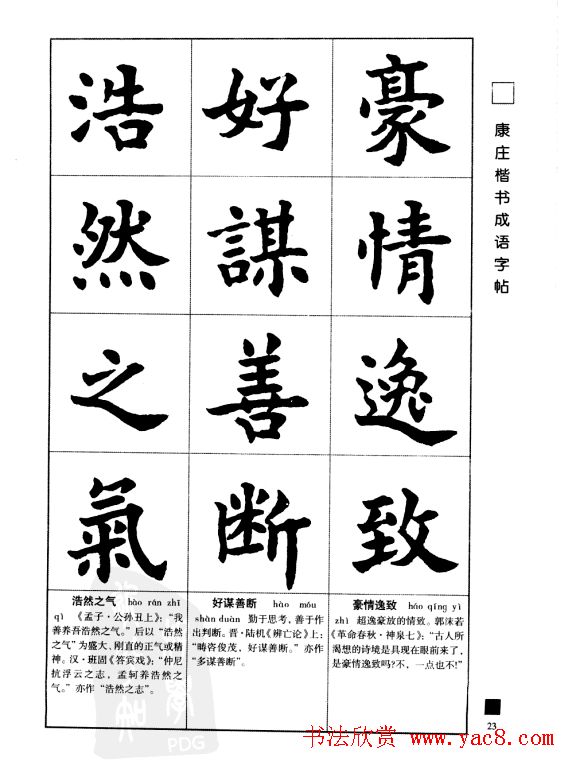 康庄楷书成语字帖
豪情逸致
好謀善断
浩然之氣
浩然之气 hào rán zhī
qì 《孟子·公孙丑上》：“我
善养吾浩然之气。”后以“浩然
之气”为盛大、刚直的正气或精
神。汉·班固《答宾戏》：“仲尼
抗浮云之志，孟轲养浩然之
气。”亦作“浩然之志”。
好谋善断 hào móu
shàn duàn 勤于思考，善于作
出判断。晋·陆机《辨亡论》上：
“畴咨俊茂，好谋善断。”亦作
“多谋善断”。
豪情逸致 háo qíng yì
zhì 超逸豪放的情致。郭沫若
《革命春秋·神泉七》：“古人所
渴想的诗境是具现在眼前来了，
是豪情逸致吗？不，一点也不！”
23
PDG
书法欣赏 www.yac8.com